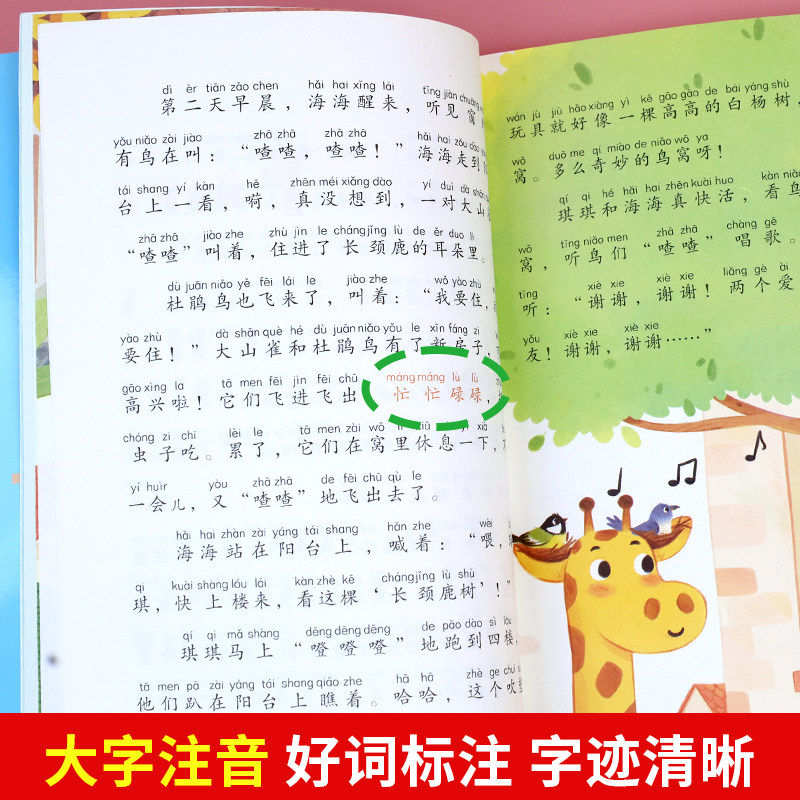 dì èr tiān zǎo chen hǎi hai xǐng lái tīng jiàn
第二天早晨，海海醒来，听见窗
yǒu niǎo zài jiào zhā zhā zhā zhā hǎi hai zǒu dào
有鸟在叫：“喳喳，喳喳！”海海走到
tái shang yí kàn hē zhēn méi xiǎng dào yí duì dà shān
台上一看，嗬，真没想到，一对大山
zhā zhā jiào zhe zhù jìn le cháng jǐng lù de ěr duo li
“喳喳”叫着，住进了长颈鹿的耳朵里。
dù juān niǎo yě fēi lái le jiào zhe wǒ yào zhù
杜鹃鸟也飞来了，叫着：“我要住，
yào zhù dà shān què hé dù juān niǎo yǒu le xīn fáng zi
要住！”大山雀和杜鹃鸟有了新房子，
gāo xìng la tā men fēi jìn fēi chū máng máng lù lù
高兴啦！它们飞进飞出 忙忙碌碌，
chóng zi chī lèi le tā men zài wō li xiū xi yí xià
虫子吃。累了，它们在窝里休息一下，
yí huìr yòu zhā zhā de fēi chū qù le
一会儿，又“喳喳”地飞出去了。
hǎi hai zhàn zài yáng tái shang hǎn zhe wèi
海海站在阳台上，喊着：“喂，
qi kuài shàng lóu lái kàn zhè kē cháng jǐng lù shù
琪，快上楼来，看这棵‘长颈鹿树’！”
qí qi mǎ shàng dēng dēng dēng de pǎo dào sì lóu
琪琪马上“噔噔噔”地跑到四楼，
tā men pā zài yáng tái shang qiáo zhe hā hā zhè ge chuī
他们趴在阳台上瞧着。哈哈，这个吹
wán jù jiù hǎo xiàng yì kē gāo gāo de bái yáng shù
玩具就好像一棵高高的白杨树，
wō duō me qí miào de niǎo wō ya
窝。多么奇妙的鸟窝呀！
qí qi hé hǎi hai zhēn kuài huo kàn niǎo
琪琪和海海真快活，看鸟
wō tīng niǎo men zhā zhā chàng gē
窝，听鸟们“喳喳”唱歌。
tīng xiè xie xiè xie liǎng gè ài
听：“谢谢，谢谢！两个爱
yǒu xiè xie xiè xie
友！谢谢，谢谢……”
大字注音 好词标注 字迹清晰